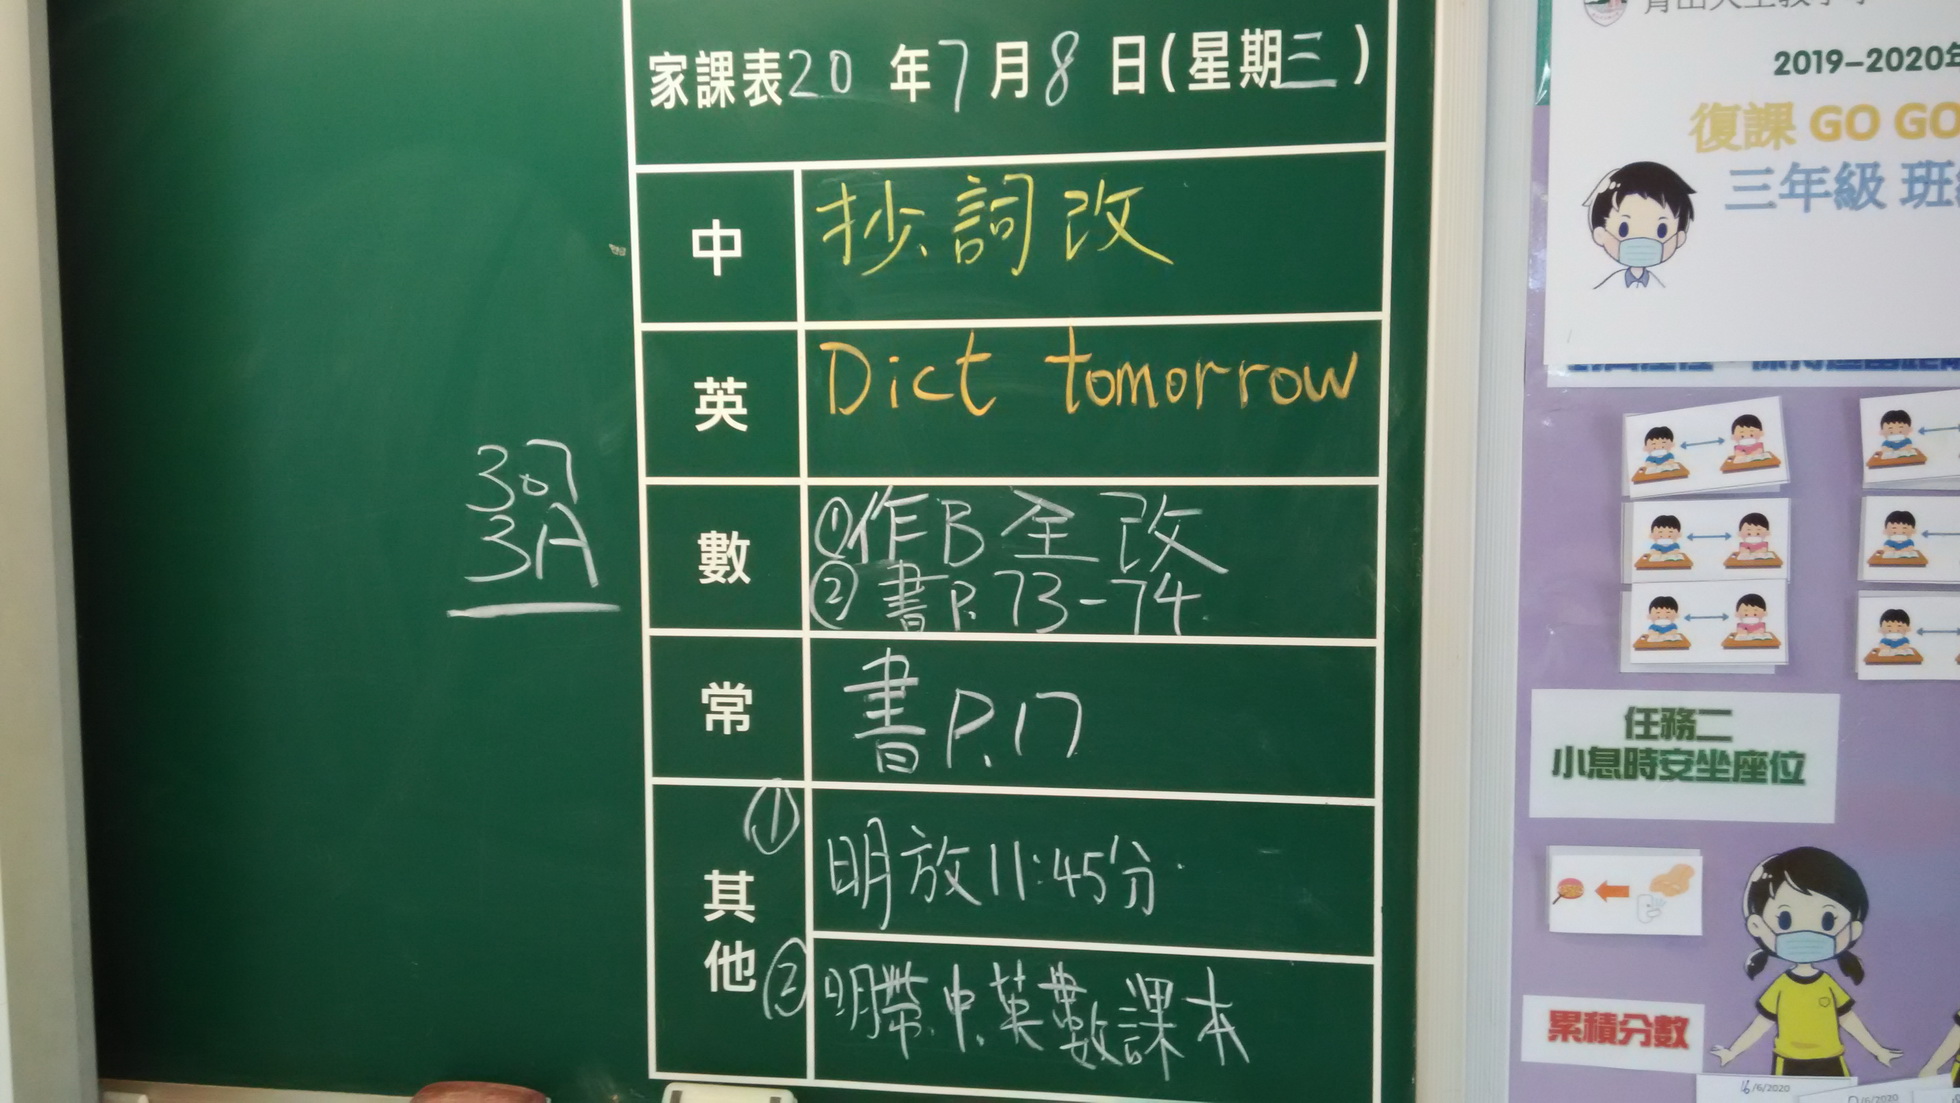 家課表20年7月8日(星期三)
中
抄詞改
英
Dict tomorrow
數
①作B全改
②書P.73-74
常
書P.17
其他
①
明放11:45分
②
明帶中英數課本
307
3A
2019-2020年
復課 GO GO
三年級 班
任務二
小息時安坐座位
累積分數
16/6/2020